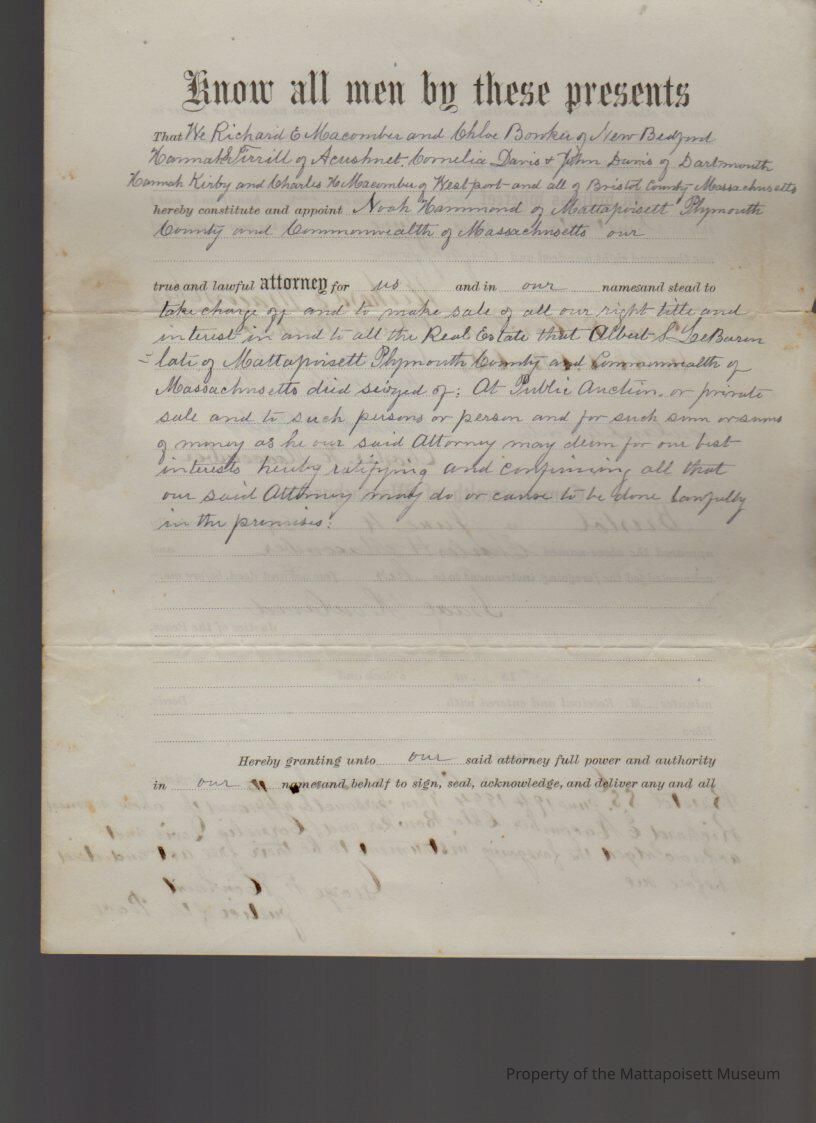 Know all men by these presents
That We Richard E Macomber and Chloe Bonker of New Bedford
Hannah E Tirrill of Acushnet, Cornelia Davis & John Davis of Dartmouth
Hannah Kirby and Charles H Macomber of Westport and all of Bristol County Massachusetts
hereby constitute and appoint Noah Hammond of Mattapoisett Plymouth
County and Commonwealth of Massachusetts our
true and lawful attorney for us and in our names and stead to
take charge of and to make sale of all our right title and
interest in and to all the Real Estate that Albert S LeBaron
late of Mattapoisett Plymouth County and Commonwealth of
Massachusetts died seized of; At Public Auction, or private
sale and to such persons or person and for such sum or sums
of money as he our said Attorney may deem for our best
interests hereby ratifying and confirming all that
our said Attorney may do or cause to be done lawfully
in the premises:
Hereby granting unto our said attorney full power and authority
in our names and behalf to sign, seal, acknowledge, and deliver any and all
Property of the Mattapoisett Museum